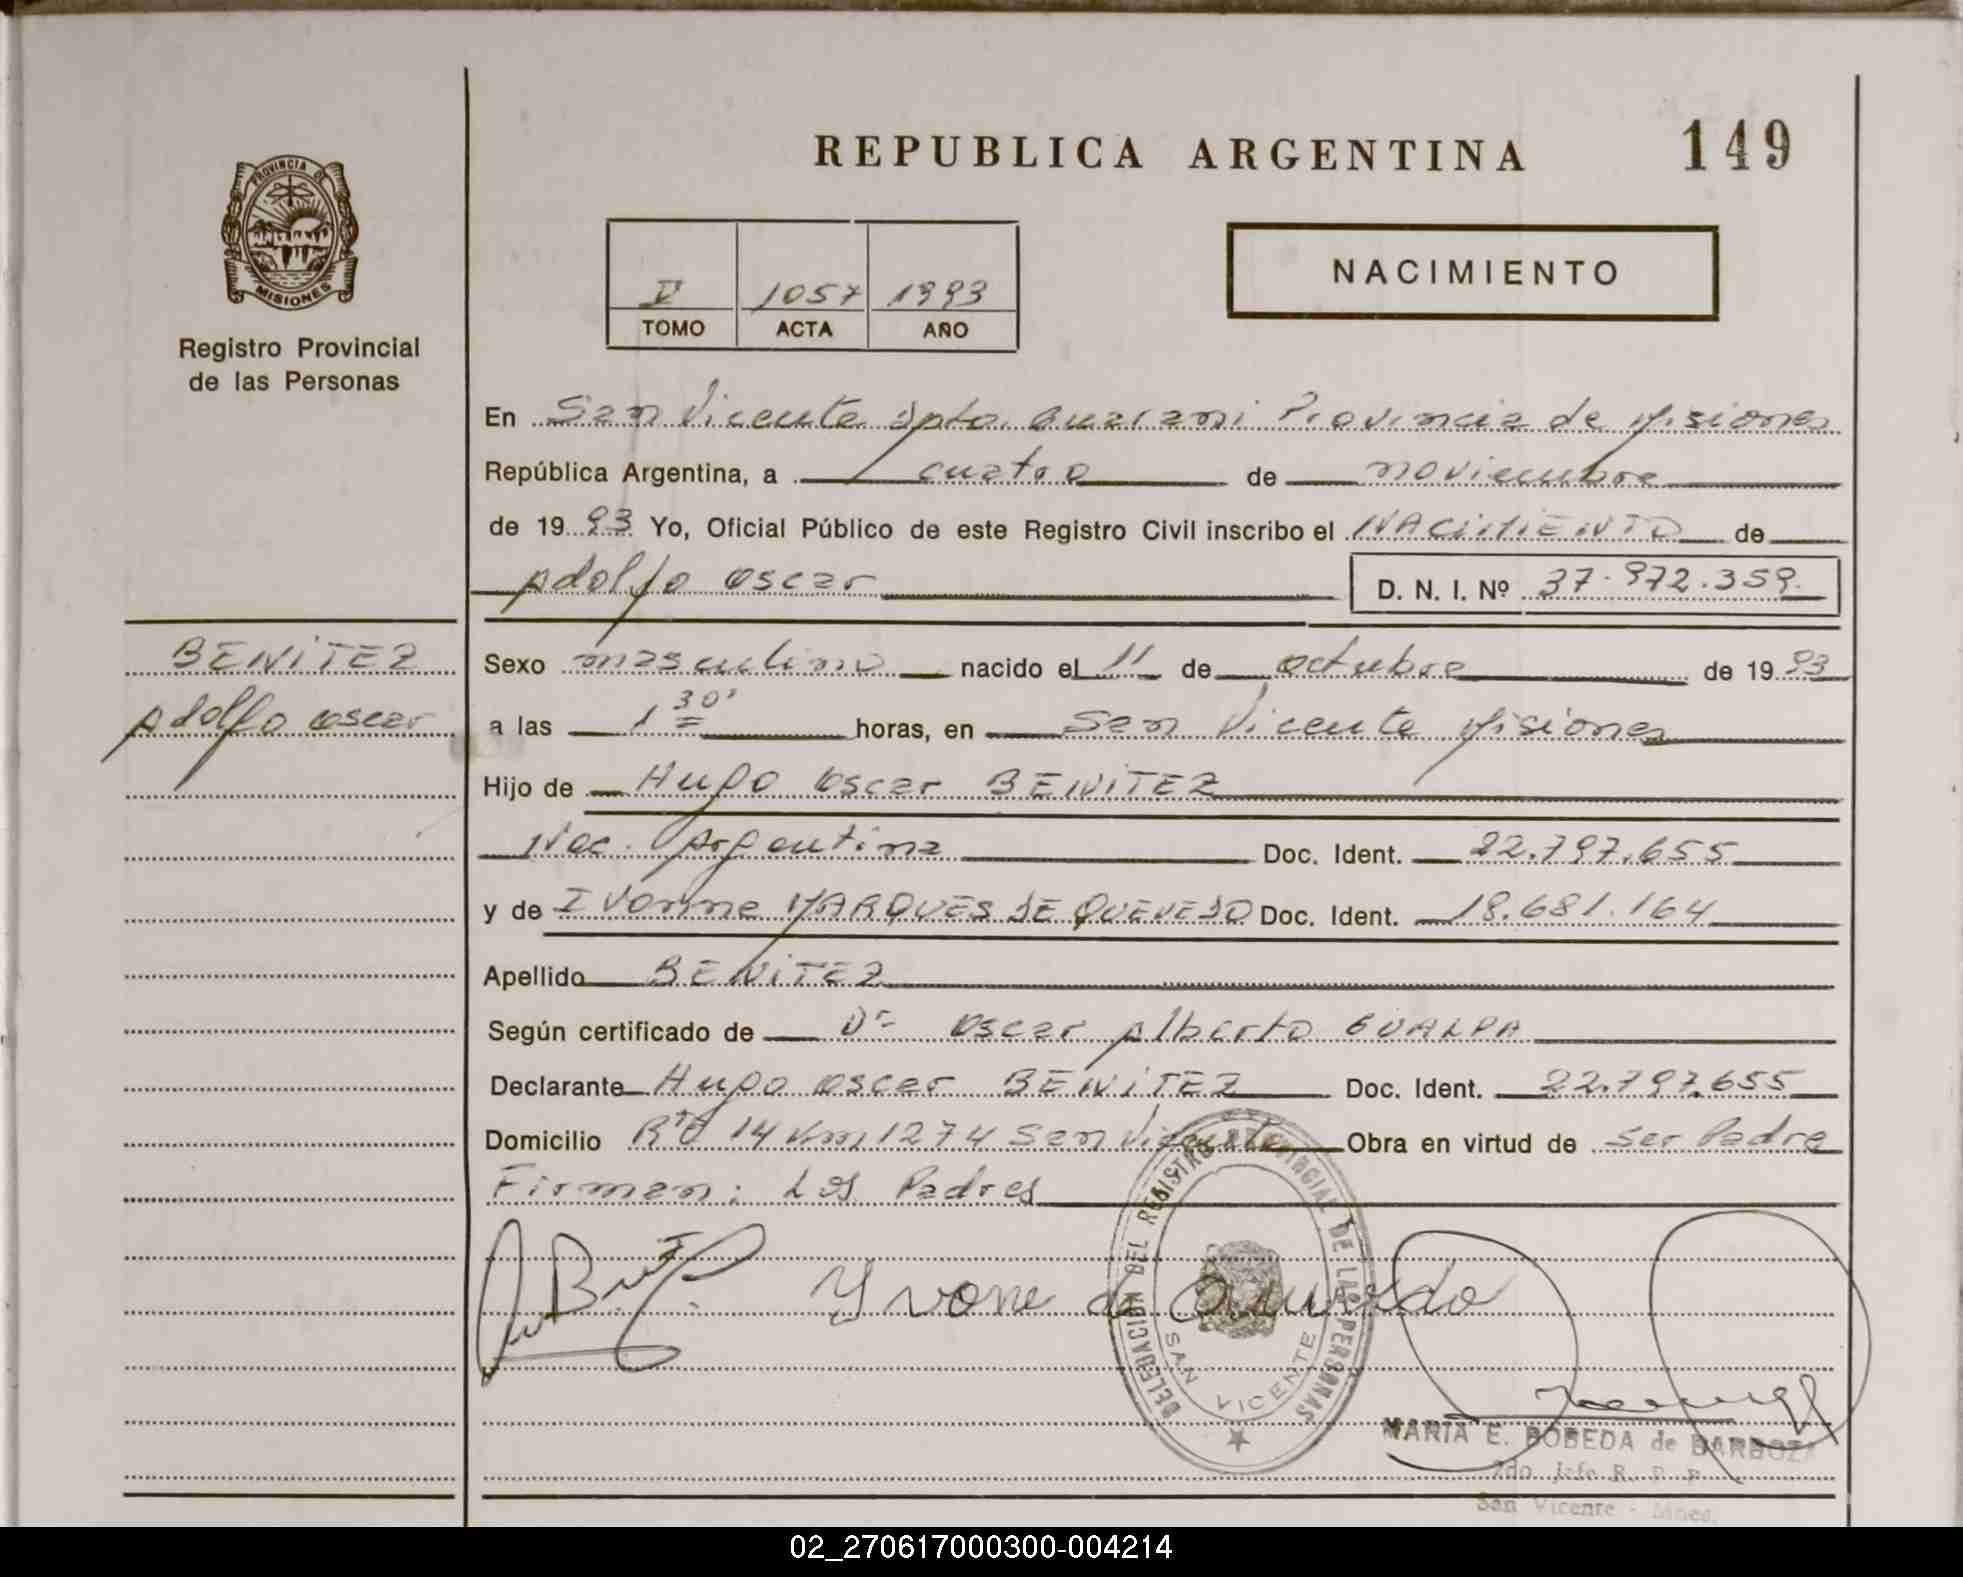 REPUBLICA ARGENTINA
149
PROVINCIA DE
MISIONES
Registro Provincial
de las Personas
1057 1993
TOMO ACTA AÑO
NACIMIENTO
En San Vicente Dpto. Guarani Provincia de Misiones
República Argentina, a cuatro de noviembre
de 1993 Yo, Oficial Público de este Registro Civil inscribo el NACIMIENTO de
Adolfo Oscar D. N. I. Nº 37.972.359.
BENITEZ
Adolfo Oscar
Sexo masculino nacido el 11 de octubre de 1993
a las 1 30' horas, en San Vicente Misiones
Hijo de Hugo Oscar BENITEZ
Nac. Argentina Doc. Ident. 22.797.655
y de Ivonne MARQUES DE QUEVEDO Doc. Ident. 18.681.164
Apellido BENITEZ
Según certificado de Dr Oscar Alberto GUALPA
Declarante Hugo Oscar BENITEZ Doc. Ident. 22.797.655
Domicilio Rta 14 Km 1274 San Vicente Obra en virtud de ser Padre
Firman: Los Padres
Yvone de Quevedo
DELEGACION DEL REGISTRO PROVINCIAL DE LAS PERSONAS
SAN VICENTE
MARIA E. BOBEDA de BARBOZA
2do. Jefe R. P. P.
San Vicente - Mnes.
02_270617000300-004214